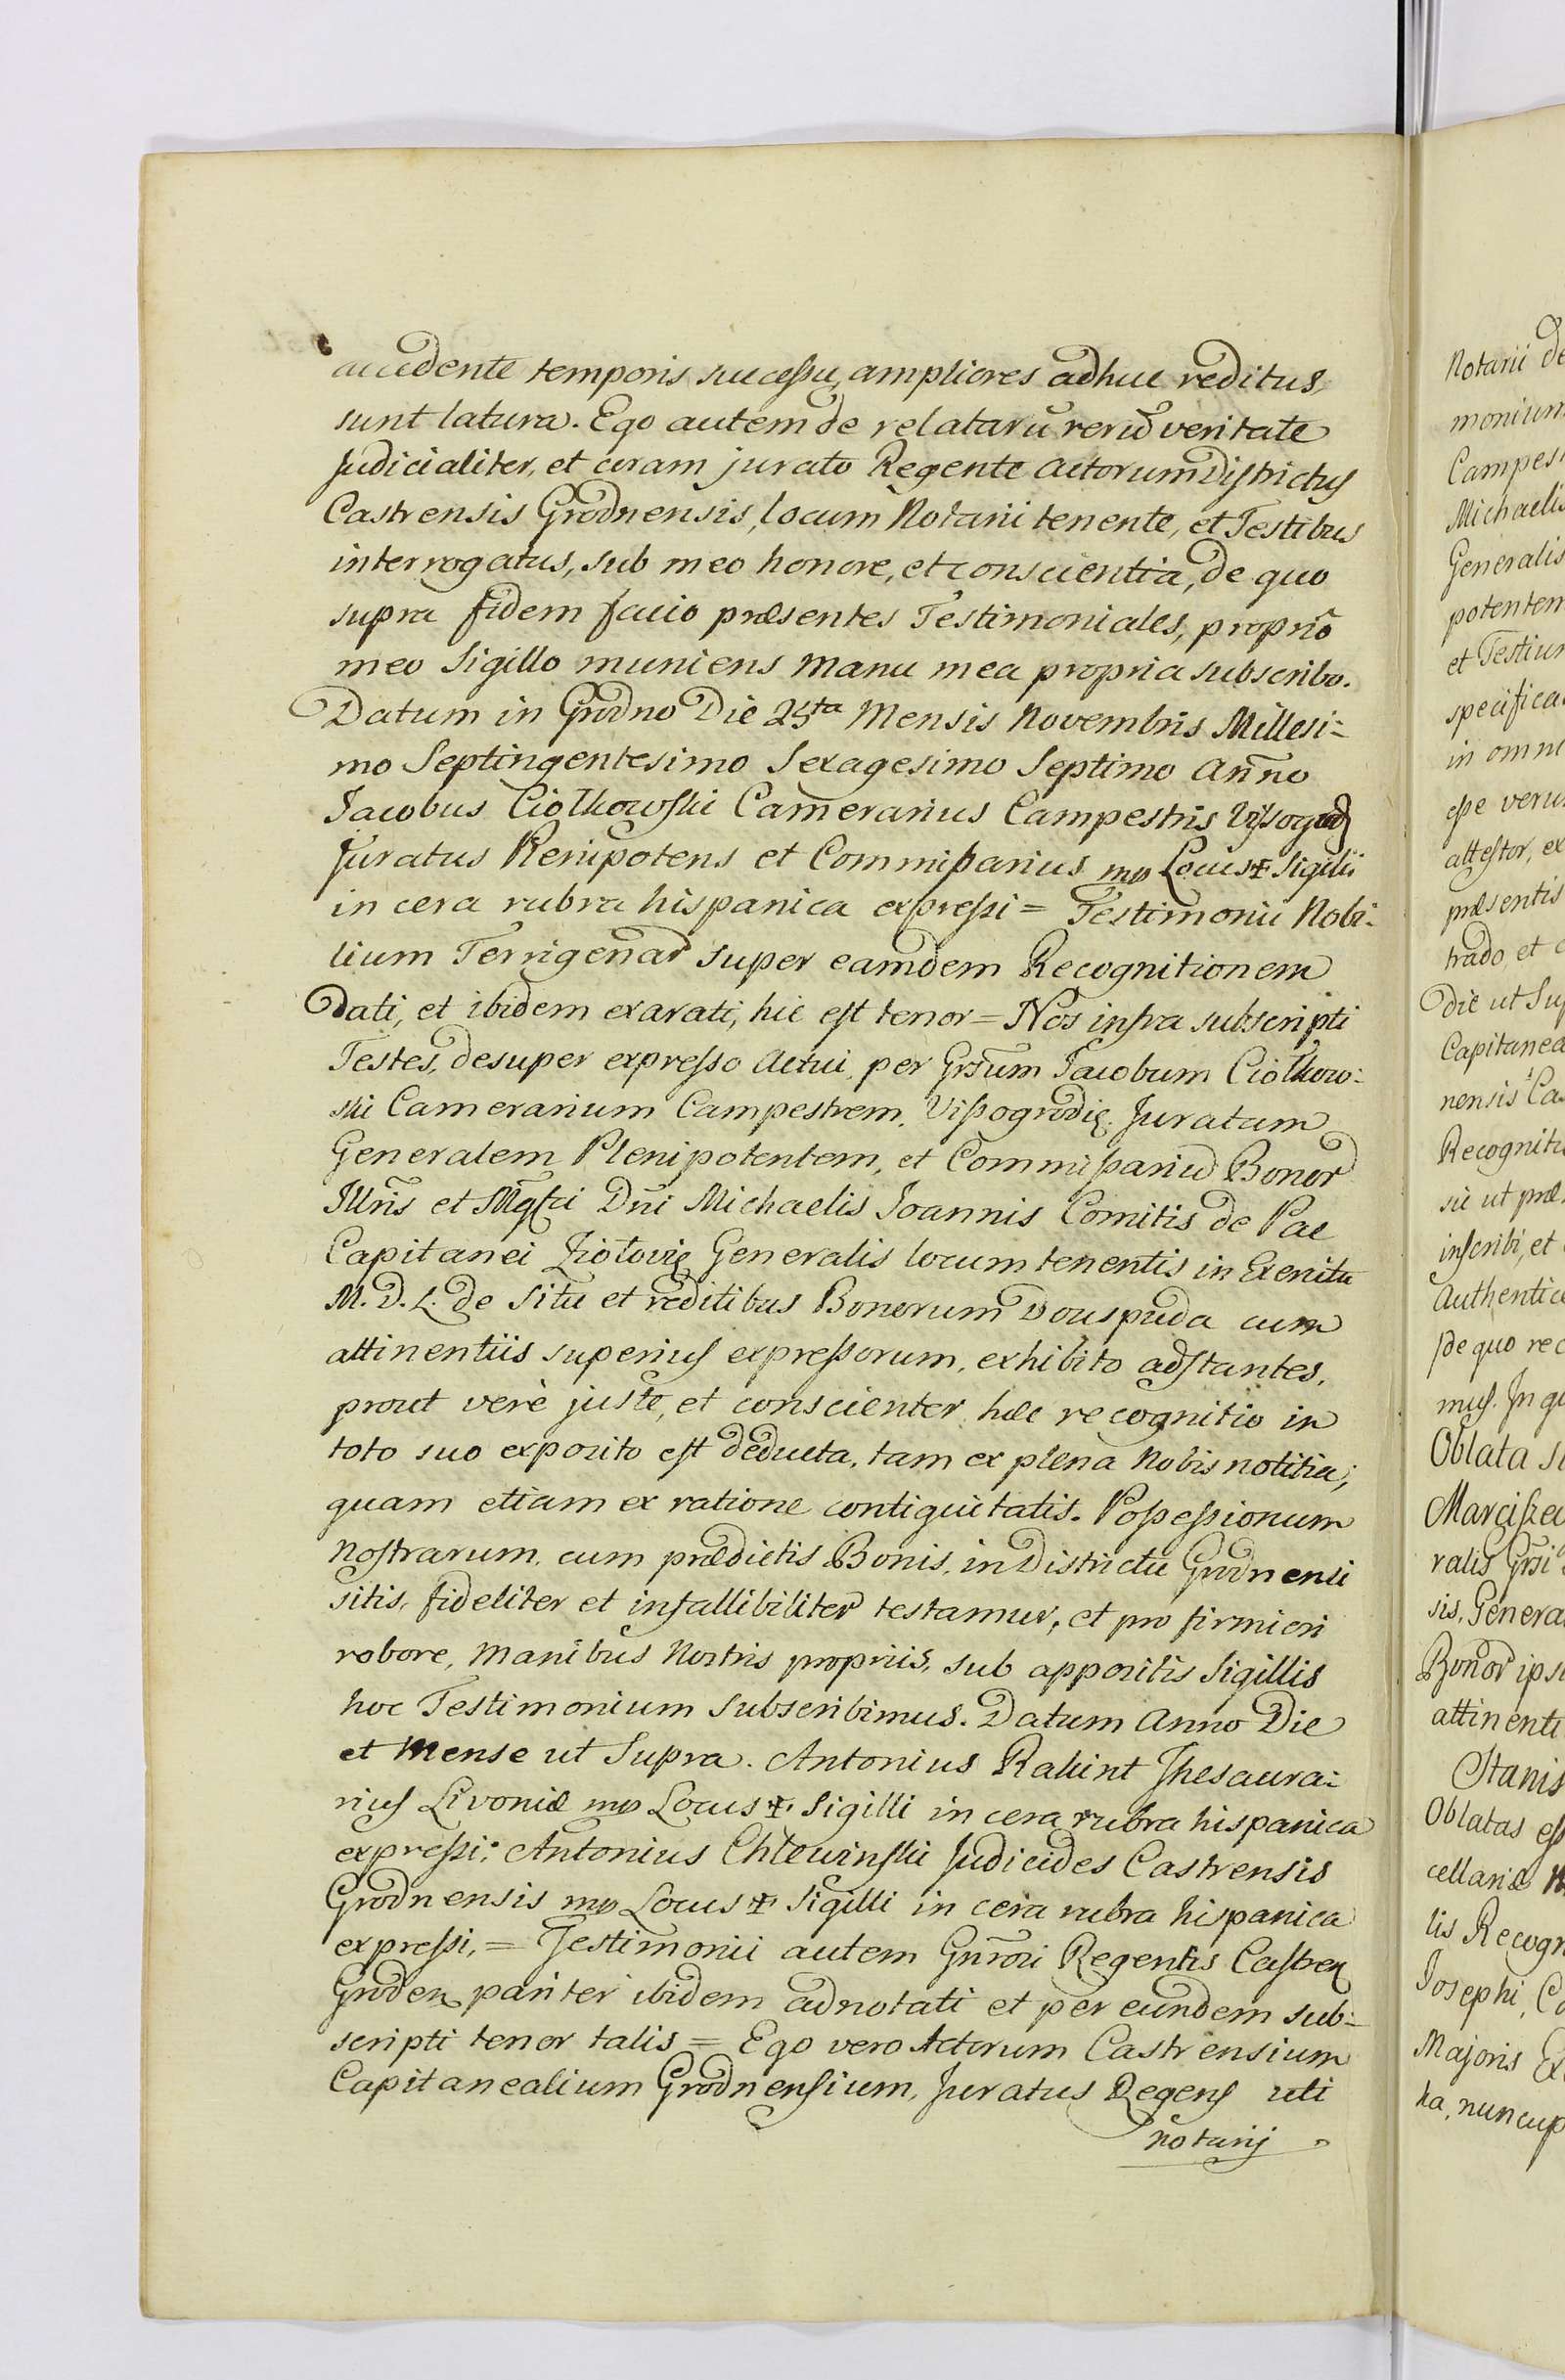 accedente temporis successu, ampliores adhuc reditus
sunt latura. Ego autem de relatarũ rerũ veritate
Judicialiter, et coram jurato Regente Actorum Districtus
Castrensis Grodnensis, locum Notarii tenente, et Testibus
interrogatus, sub meo honore, et conscientia, de quo
supra fidem facio præsentes Testimoniales, proprio
meo Sigillo muniens manu mea propria subscribo.
Datum in Grodno Die 25ta Mensis Novembris Millesi-
mo Septingentesimo Sexagesimo Septimo Anno
Jacobus Ciołkowski Camerarius Campestris
Juratus Plenipotens et Commissarius mp Locus ✠ Sigilli
in cera rubra hispanica expressi = Testimonii Nobi-
lium Terrigenar super eamdem Recognitionem
Dati, et ibidem exarati, hic est tenor = Nos infra subscripti
Testes, desuper expresso Actui, per Grsum Jacobum Ciołkow-
ski Camerarium Campestrem, Vissogrodię Juratum
Generalem Plenipotentem, et Commissariũ Bonor
Illris et Mgfci Dni Michaelis Joannis Comitis de Pac
Capitanei Ziołovię Generalis locum tenentis in Exercitu
M. D. L. de Situ et reditibus Bonorum Douspuda cum
attinentiis superius expressorum, exhibito adstantes,
prout verè juste, et conscienter hæc recognitio in
toto suo exposito est deducta, tam ex plena Nobis notitia;
quam etiam ex ratione contiguitatis Possessionum
Nostrarum, cum prædictis Bonis, in Districtu Grodnensi
sitis, fideliter et infallibiliter testamur, et pro firmiori
robore, Manibus Nostris propriis, sub appositis Sigillis
hoc Testimonium Subscribimus. Datum Anno Die
et Mense ut Supra. Antonius Rakint Thesaura-
rius Livoniæ mp Locus ✠ Sigilli in cera rubra hispanica
expressi: Antonius Chlewinski Judicides Castrensis
Grodnensis mp Locus ✠ Sigilli in cera rubra hispanica
expressi, = Testimonii autem Gnrosi Regentis Castren
Groden pariter ibidem adnotati et per eundem sub-
scripti tenor talis = Ego vero Actorum Castrensium
Capitanealium Grodnensium, Juratus Regens uti
notarij
Notarii de
monium
Campes
Michaelis
Generalis
potentem
et Testium
specifica
in omni
esse veru
attestor, ex
præsentis
trado, et
die ut Sup
Capitanea
nensis Ca
Recognitu
sic ut præ
inscribi, et
Authentic
de quo rec
mus. In qu
Oblata
Marciszew
ralis Grsi
sis, Genera
Bonor ips
attinenti
Stanis
Oblatas ess
cellariæ
lis Recogn
Josephi, C
Majoris
ha, nuncup